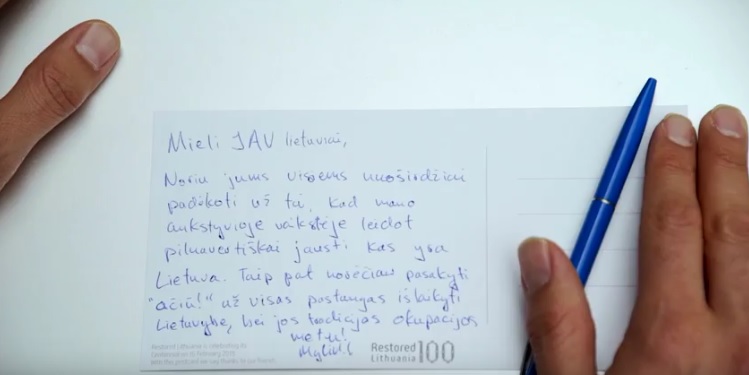 Mieli JAV lietuviai,
Noriu jums visiems nuoširdžiai
padėkoti už tai, kad mano
ankstyvioje vaikstėje leidot
pilnavertiškai jausti kas yra
Lietuva. Taip pat norėčiau pasakyti
"ačiū!" už visas pastangas išlaikyti
Lietuvybę, bei jos tradicijas okupacijos
metu!
Restored Lithuania is celebrating its
Centennial on 16 February 2018
With this postcard we say thanks to our friends
Restored
Lithuania 100